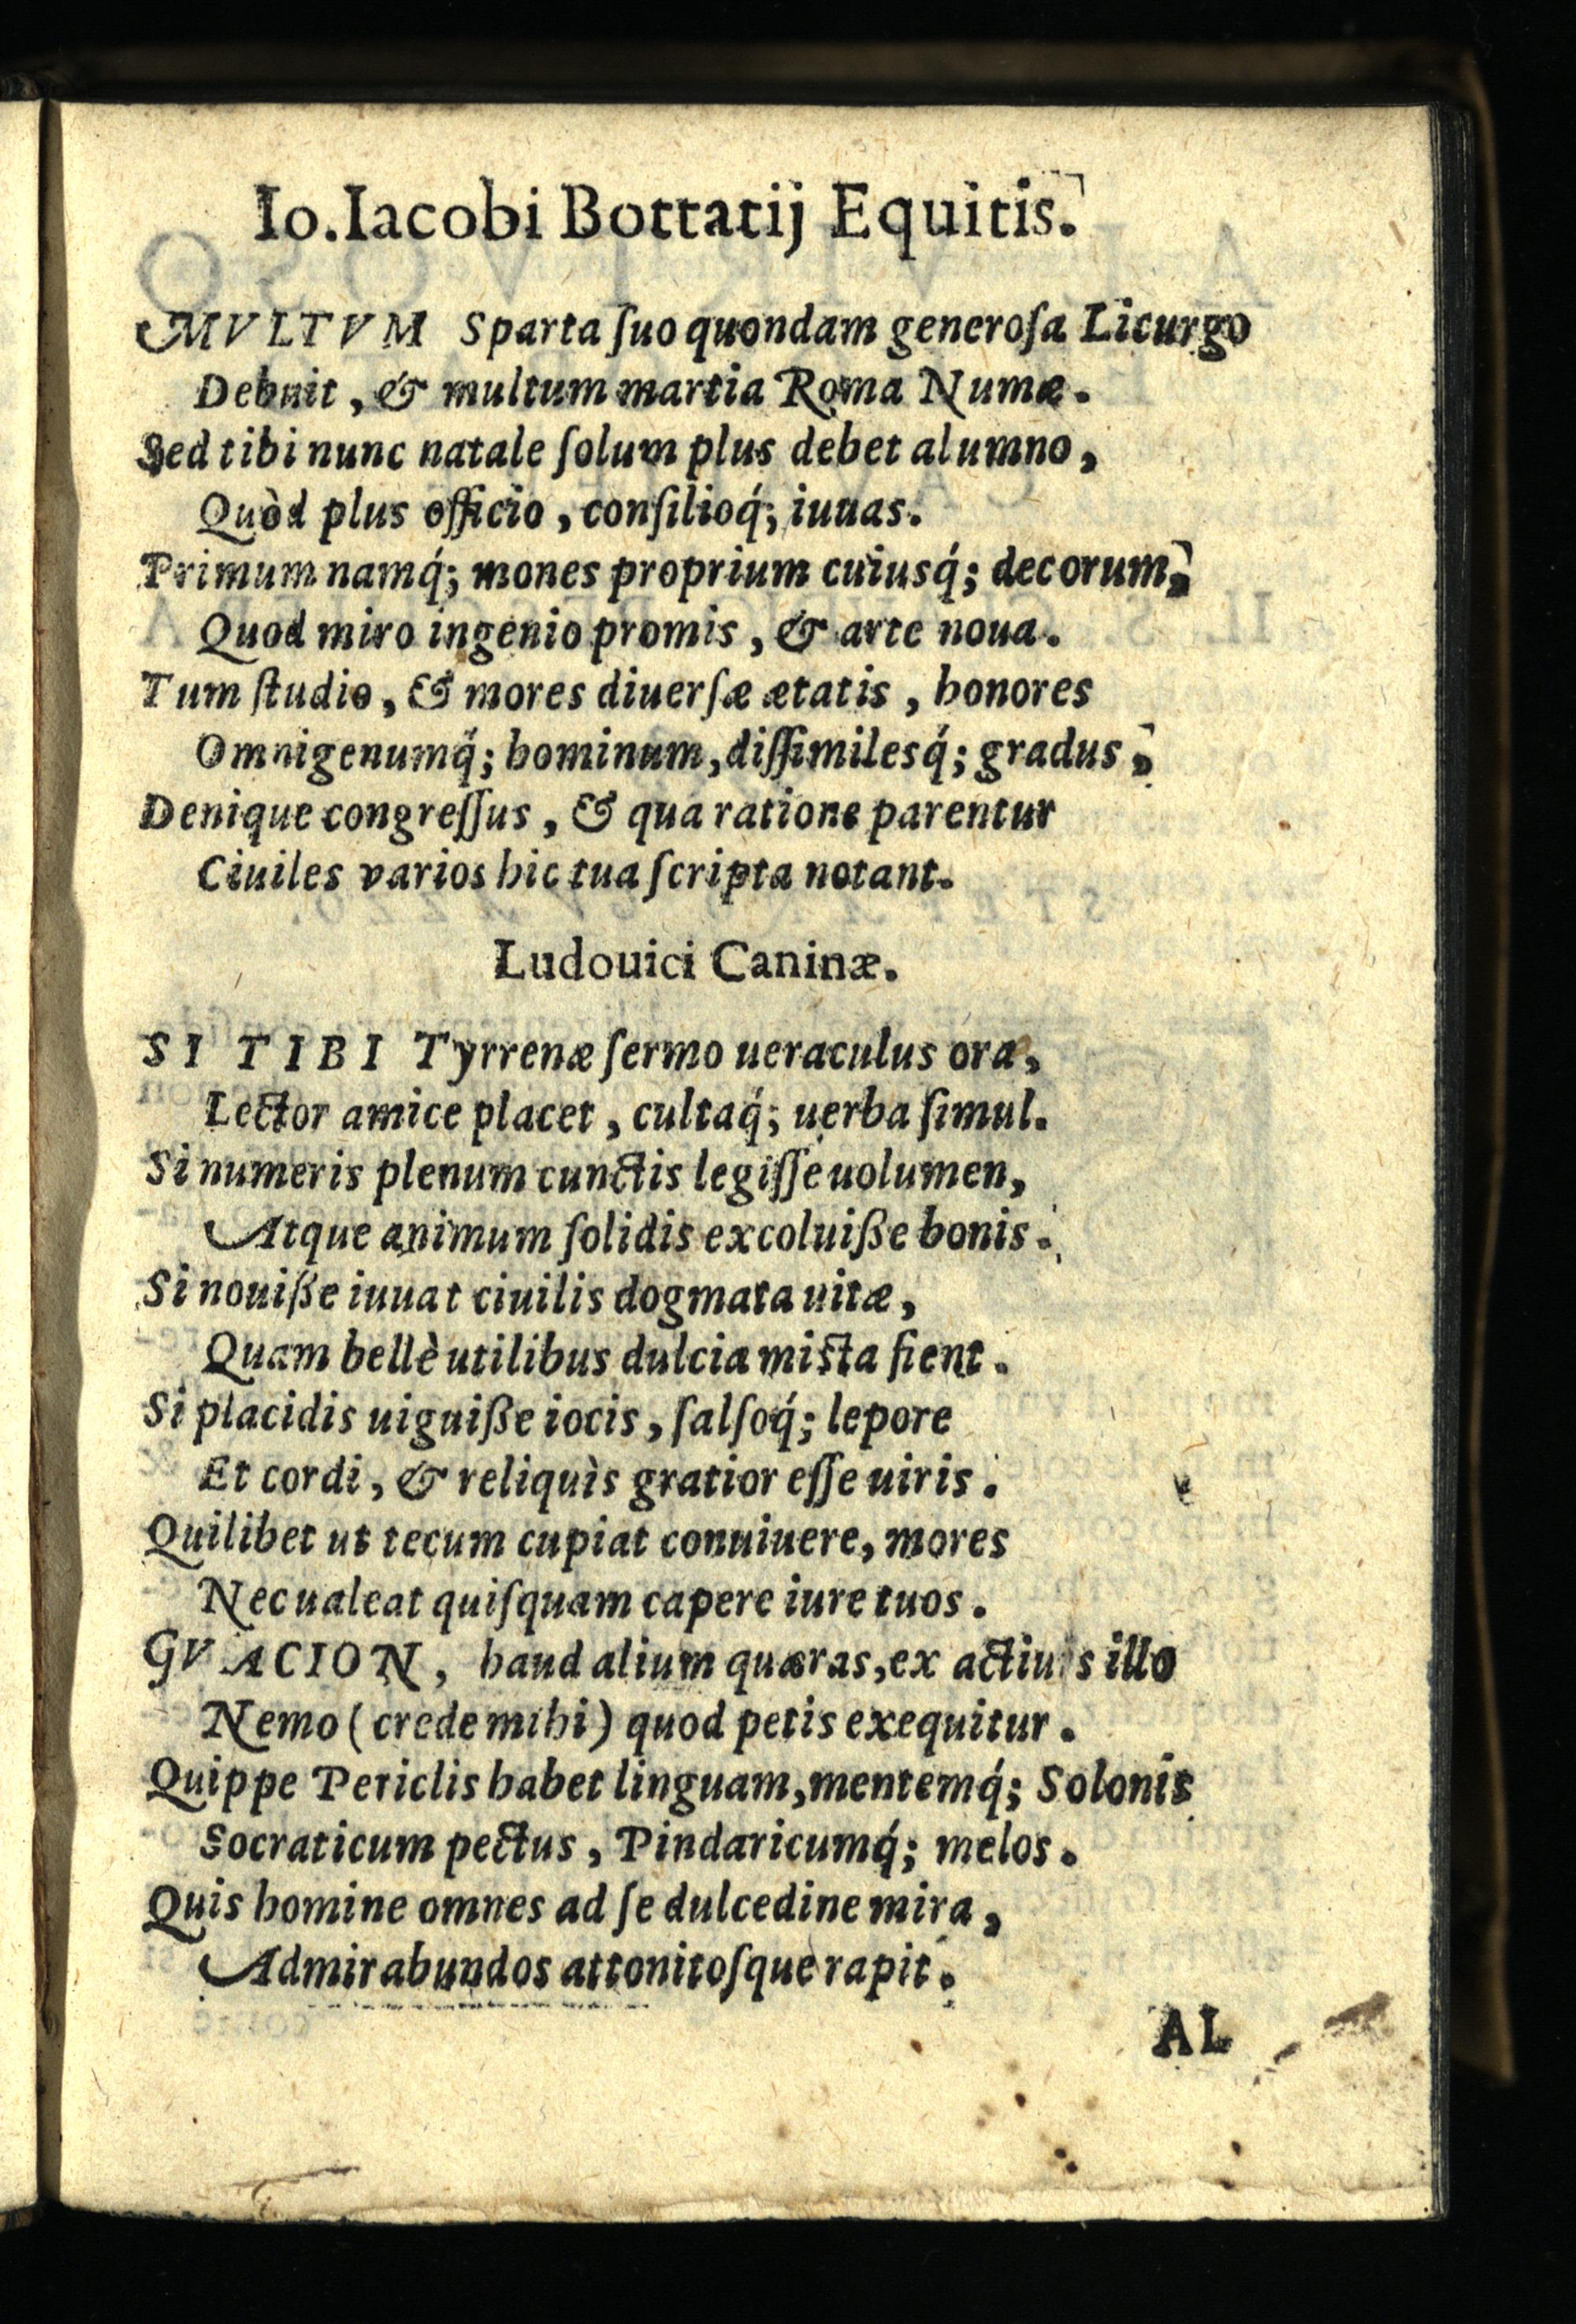 Io.Iacobi Bottatij Equitis.
MVLTVM Sparta ſuo quondam generoſa Licurgo
Debuit, & multum martia Roma Numæ.
Sed tibi nunc natale ſolum plus debet alumno,
Quòd plus officio, conſilioq́; iuuas.
Primum namq́; mones proprium cuiusq́; decorum,
Quod miro ingenio promis, & arte noua.
Tum ſtudio, & mores diuerſæ ætatis, honores
Omnigenumq́; hominum, diſſimilesq́; gradus,
Denique congreſſus, & qua ratione parentur
Ciuiles varios hic tua ſcripta notant.
Ludouici Caninæ.
SI TIBI Tyrrenæ ſermo ueraculus ora,
Lector amice placet, cultaq́; uerba ſimul.
Si numeris plenum cunctis legiſſe uolumen,
Atque animum ſolidis excoluiße bonis.
Si nouiße iuuat ciuilis dogmata uitæ,
Quam bellè utilibus dulcia mista fient.
Si placidis uiguiße iocis, ſalſoq́; lepore
Et cordi, & reliquìs gratior eſſe uiris.
Quilibet ut tecum cupiat conuiuere, mores
Nec ualeat quiſquam capere iure tuos.
GVACION, haud alium quæras, ex actiuis illo
Nemo (crede mihi) quod petis exequitur.
Quippe Periclis habet linguam, mentemq́; Solonis
Socraticum pectus, Pindaricumq́; melos.
Quis homine omnes ad ſe dulcedine mira,
Admirabundos attonitoſque rapit.
AL